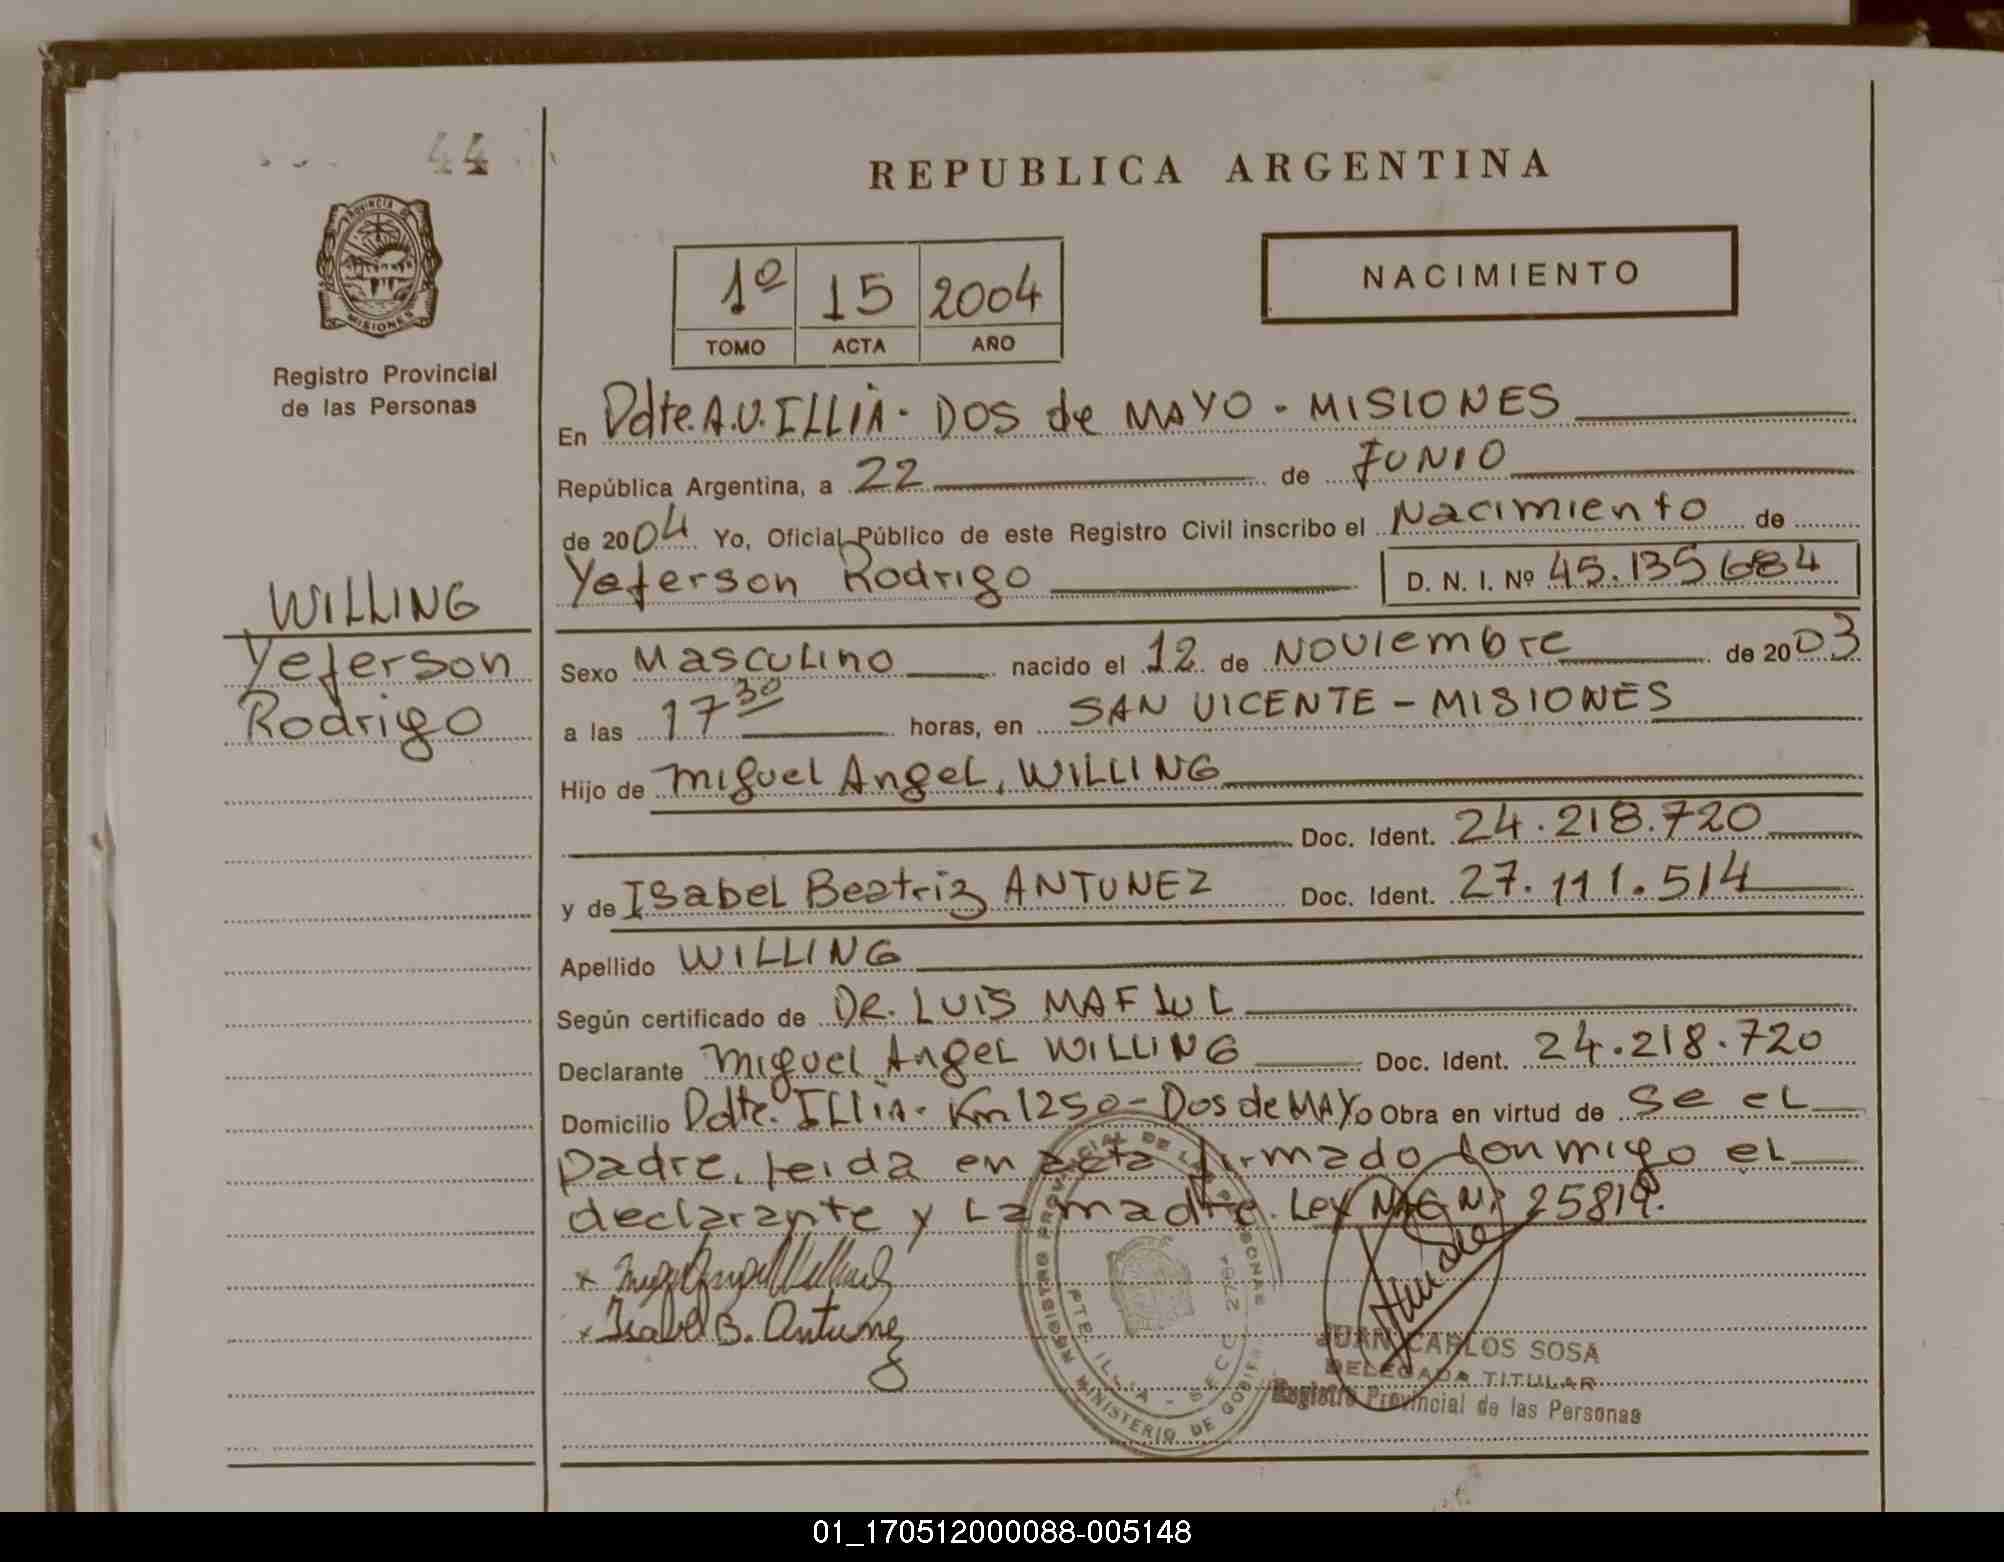 44
PROVINCIA DE
MISIONES
Registro Provincial
de las Personas
WILLING
Yeferson
Rodrigo
REPUBLICA ARGENTINA
1º 15 2004
TOMO ACTA AÑO
NACIMIENTO
En Pdte. A.U. ILLIA - DOS de MAYO - MISIONES
República Argentina, a 22 de JUNIO
de 2004 Yo, Oficial Público de este Registro Civil inscribo el Nacimiento de
Yeferson Rodrigo D. N. I. Nº 45.135684
Sexo Masculino nacido el 12 de Noviembre de 2003
a las 17 30 horas, en SAN VICENTE - MISIONES
Hijo de Miguel Angel, WILLING
Doc. Ident. 24.218.720
y de Isabel Beatriz ANTUNEZ Doc. Ident. 27.111.514
Apellido WILLING
Según certificado de DR. LUIS
Declarante Miguel Angel WILLING Doc. Ident. 24.218.720
Domicilio Pdte. ILLIA - Km 1250 - Dos de MAYO Obra en virtud de se el
padre, leida en acta firmado conmigo el
declarante y La madre. Ley 25819.
Isabel B. Antunez
REGISTRO PROVINCIAL DE LAS PERSONAS
MINISTERIO DE GOBIER
PTE ILLIA - SECC
JUAN CARLOS SOSA
DELEGADA TITULAR
Registro Provincial de las Personas
01_170512000088-005148